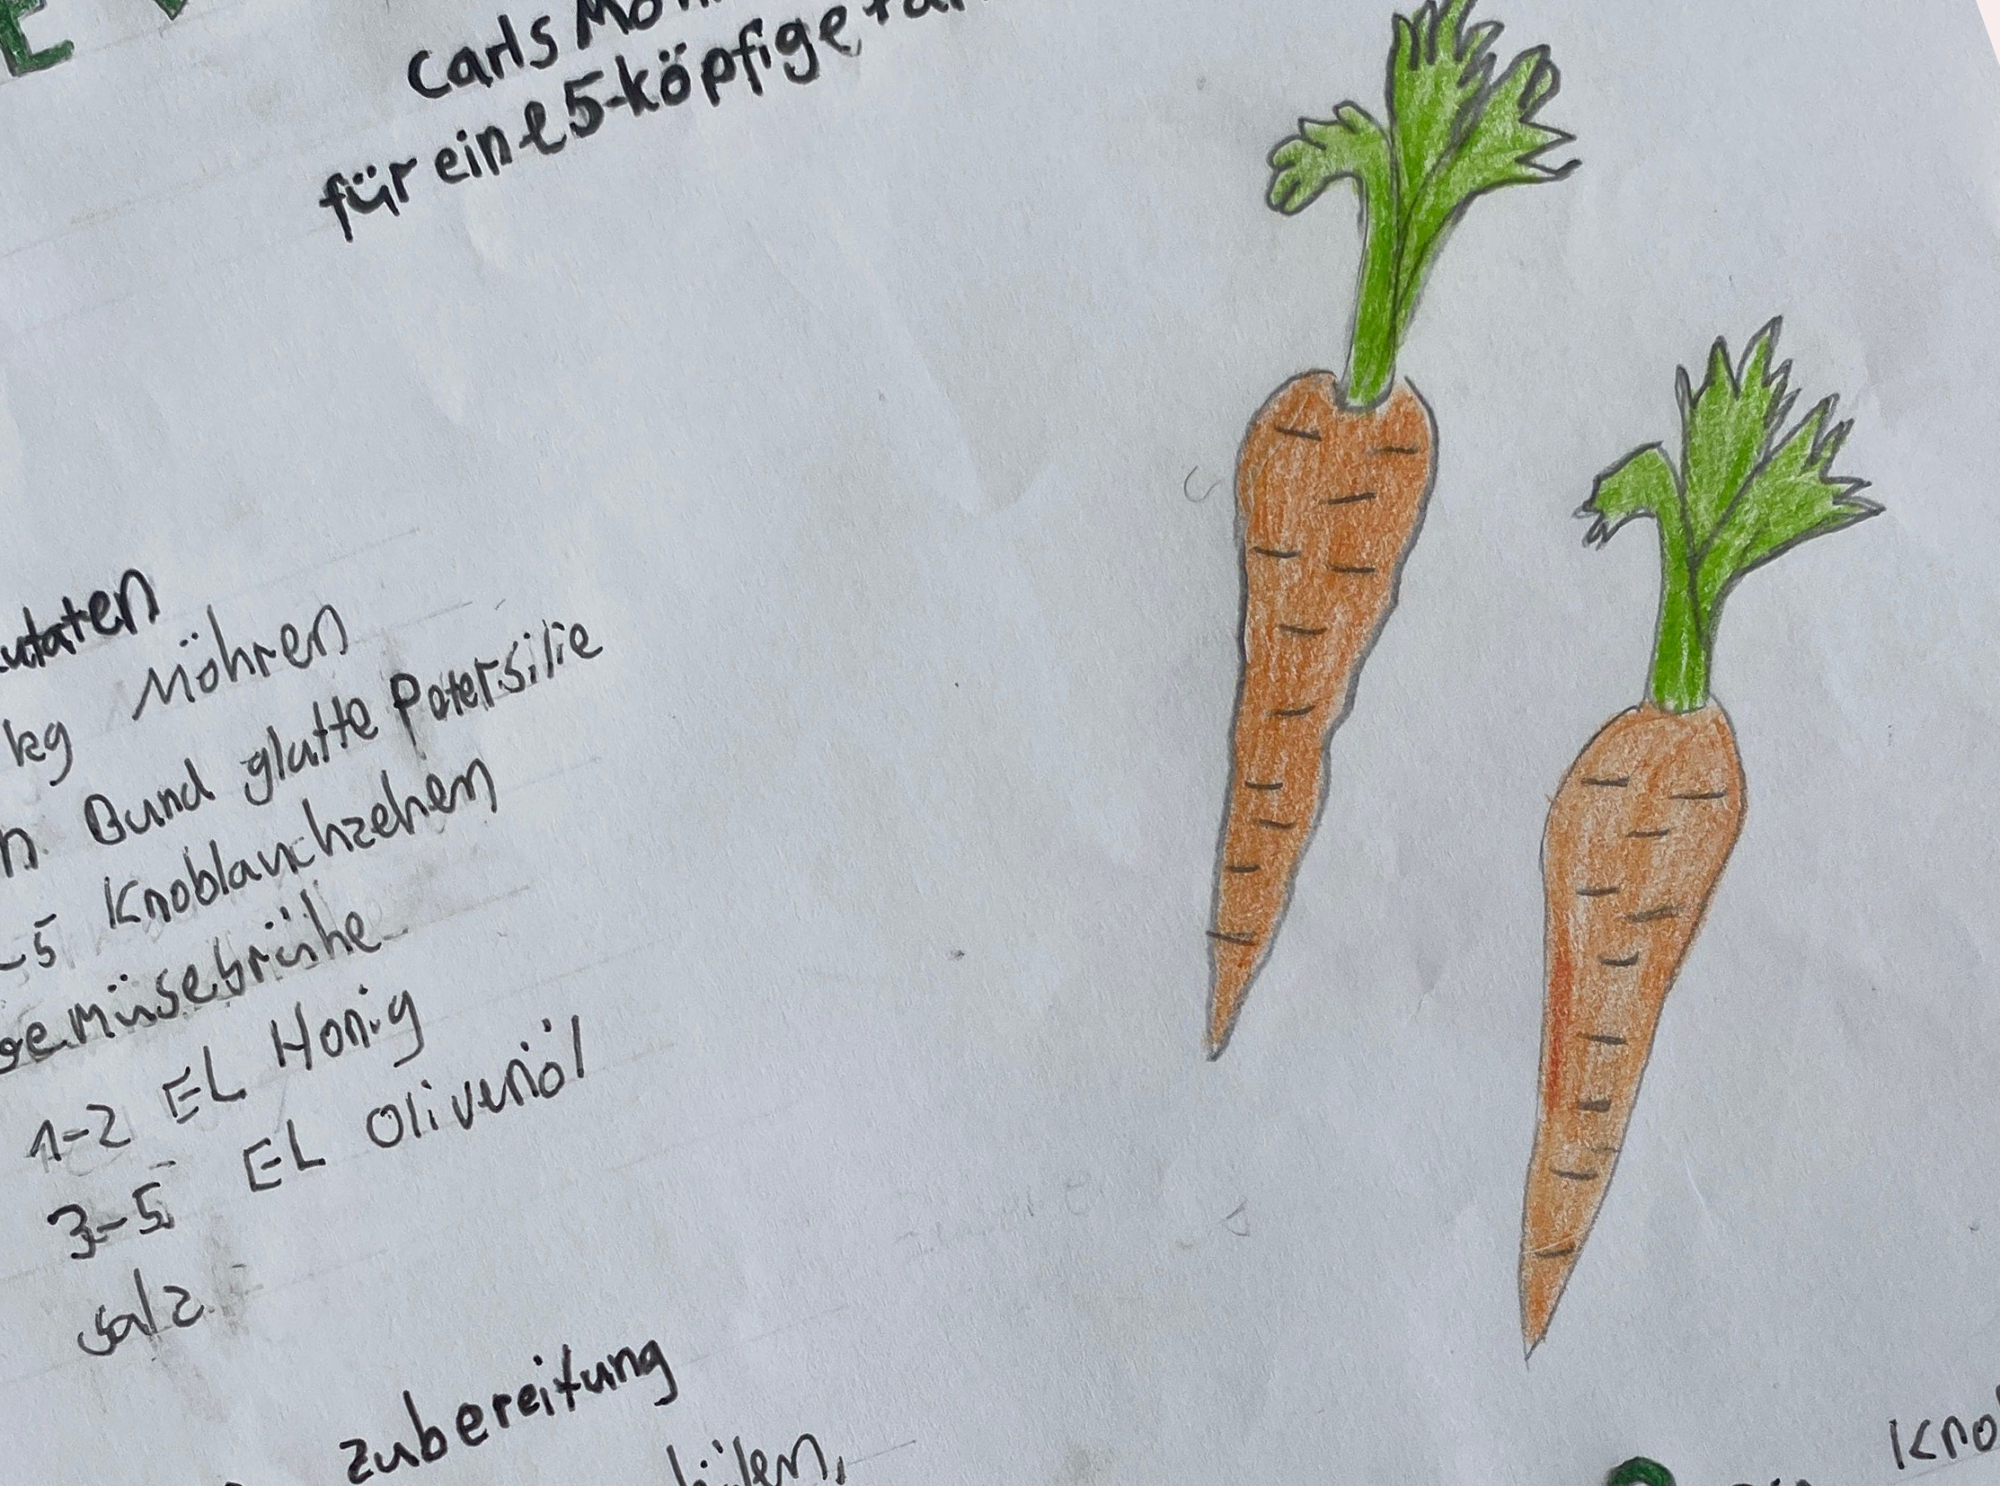 E
Carls
für eine 5-köpfige
Zutaten
kg Möhren
Bund glatte Petersilie
-5 Knoblauchzehen
Gemüsebrühe
1-2 EL Honig
3-5 EL Olivenöl
salz
zubereitung